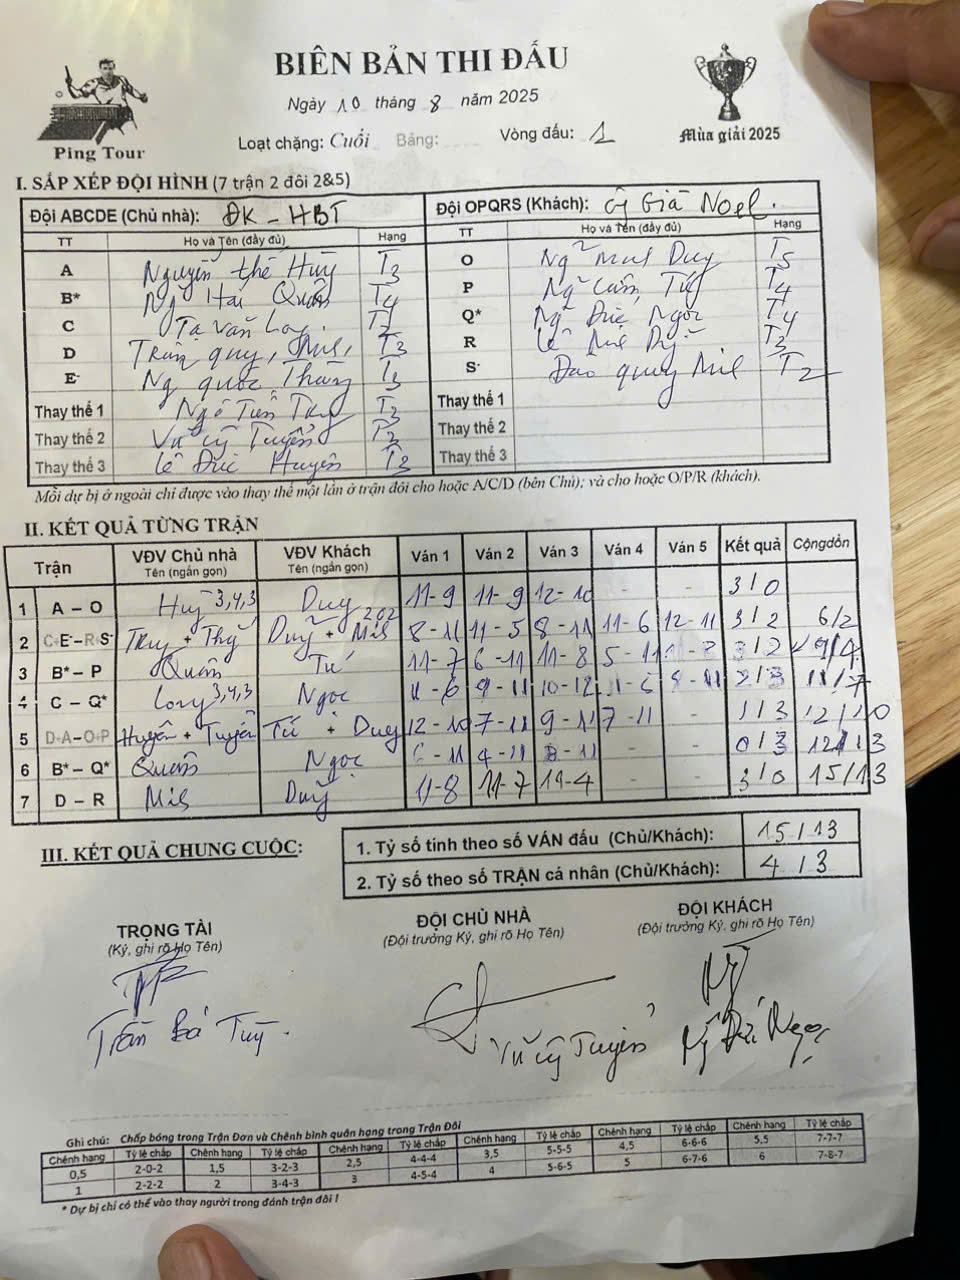 BIÊN BẢN THI ĐẤU
Ngày 10 tháng 8 năm 2025
Ping Tour
Loạt chặng: Cuối Bảng: Vòng đấu: 1
Mùa giải 2025
I. SẮP XẾP ĐỘI HÌNH (7 trận 2 đôi 2&5)
Đội ABCDE (Chủ nhà): ĐK - HBT Đội OPQRS (Khách): Ông Già Noel.
TT Họ và Tên (đầy đủ) Hạng TT Họ và Tên (đầy đủ) Hạng
A Nguyễn thế Huy T3 O Duy T5
B* Ng Hải Quân T4 P Ng Cẩm Tú T4
C Tạ Văn Long T2 Q* Ng Đức Ngọc T4
D Trần quý T3 R Lê T3
E- Ng quốc T3 S- Đào quang T2
Thay thế 1 Ngô Tiến T3 Thay thế 1
Thay thế 2 Vũ Tuyển T3 Thay thế 2
Thay thế 3 Lê Đức Huyên T3 Thay thế 3
Mỗi dự bị ở ngoài chỉ được vào thay thế một lần ở trận đôi cho hoặc A/C/D (bên Chủ); và cho hoặc O/P/R (khách).
II. KẾT QUẢ TỪNG TRẬN
Trận VĐV Chủ nhà Tên (ngắn gọn) VĐV Khách Tên (ngắn gọn) Ván 1 Ván 2 Ván 3 Ván 4 Ván 5 Kết quả Cộngdồn
1 A – O Huy 3,4,3 Duy 11-9 11-9 12-10 - - 3/0
2 C+E-–R+S- Duy + 202 8-11 11-5 8-11 11-6 12-11 3/2 6/2
3 B* – P Quân Tú 11-7 6-11 11-8 5-11 3/2 9/4
4 C – Q* Long 3,4,3 Ngọc 11-6 9-11 10-12 2/3 11/7
5 D+A–O+P Huyên + Tuyển Tú + Duy 12-10 7-11 9-11 7-11 1/3 12/10
6 B* – Q* Quân Ngọc 6-11 4-11 8-11 - - 0/3 12/13
7 D – R 11-8 11-7 11-4 - - 3/0 15/13
III. KẾT QUẢ CHUNG CUỘC:
1. Tỷ số tính theo số VÁN đấu (Chủ/Khách): 15/13
2. Tỷ số theo số TRẬN cá nhân (Chủ/Khách): 4/3
TRỌNG TÀI ĐỘI CHỦ NHÀ ĐỘI KHÁCH
(Ký, ghi rõ Họ Tên) (Đội trưởng Ký, ghi rõ Họ Tên) (Đội trưởng Ký, ghi rõ Họ Tên)
Trần Bá Tùy. Tuyển Ng Đức Ngọc
Ghi chú: Chấp bóng trong Trận Đơn và Chênh bình quân hạng trong Trận Đôi
Chênh hạng Tỷ lệ chấp Chênh hạng Tỷ lệ chấp Chênh hạng Tỷ lệ chấp Chênh hạng Tỷ lệ chấp Chênh hạng Tỷ lệ chấp Chênh hạng Tỷ lệ chấp
0,5 2-0-2 1,5 3-2-3 2,5 4-4-4 3,5 5-5-5 4,5 6-6-6 5,5 7-7-7
1 2-2-2 2 3-4-3 3 4-5-4 4 5-6-5 5 6-7-6 6 7-8-7
* Dự bị chỉ có thể vào thay người trong đánh trận đôi !